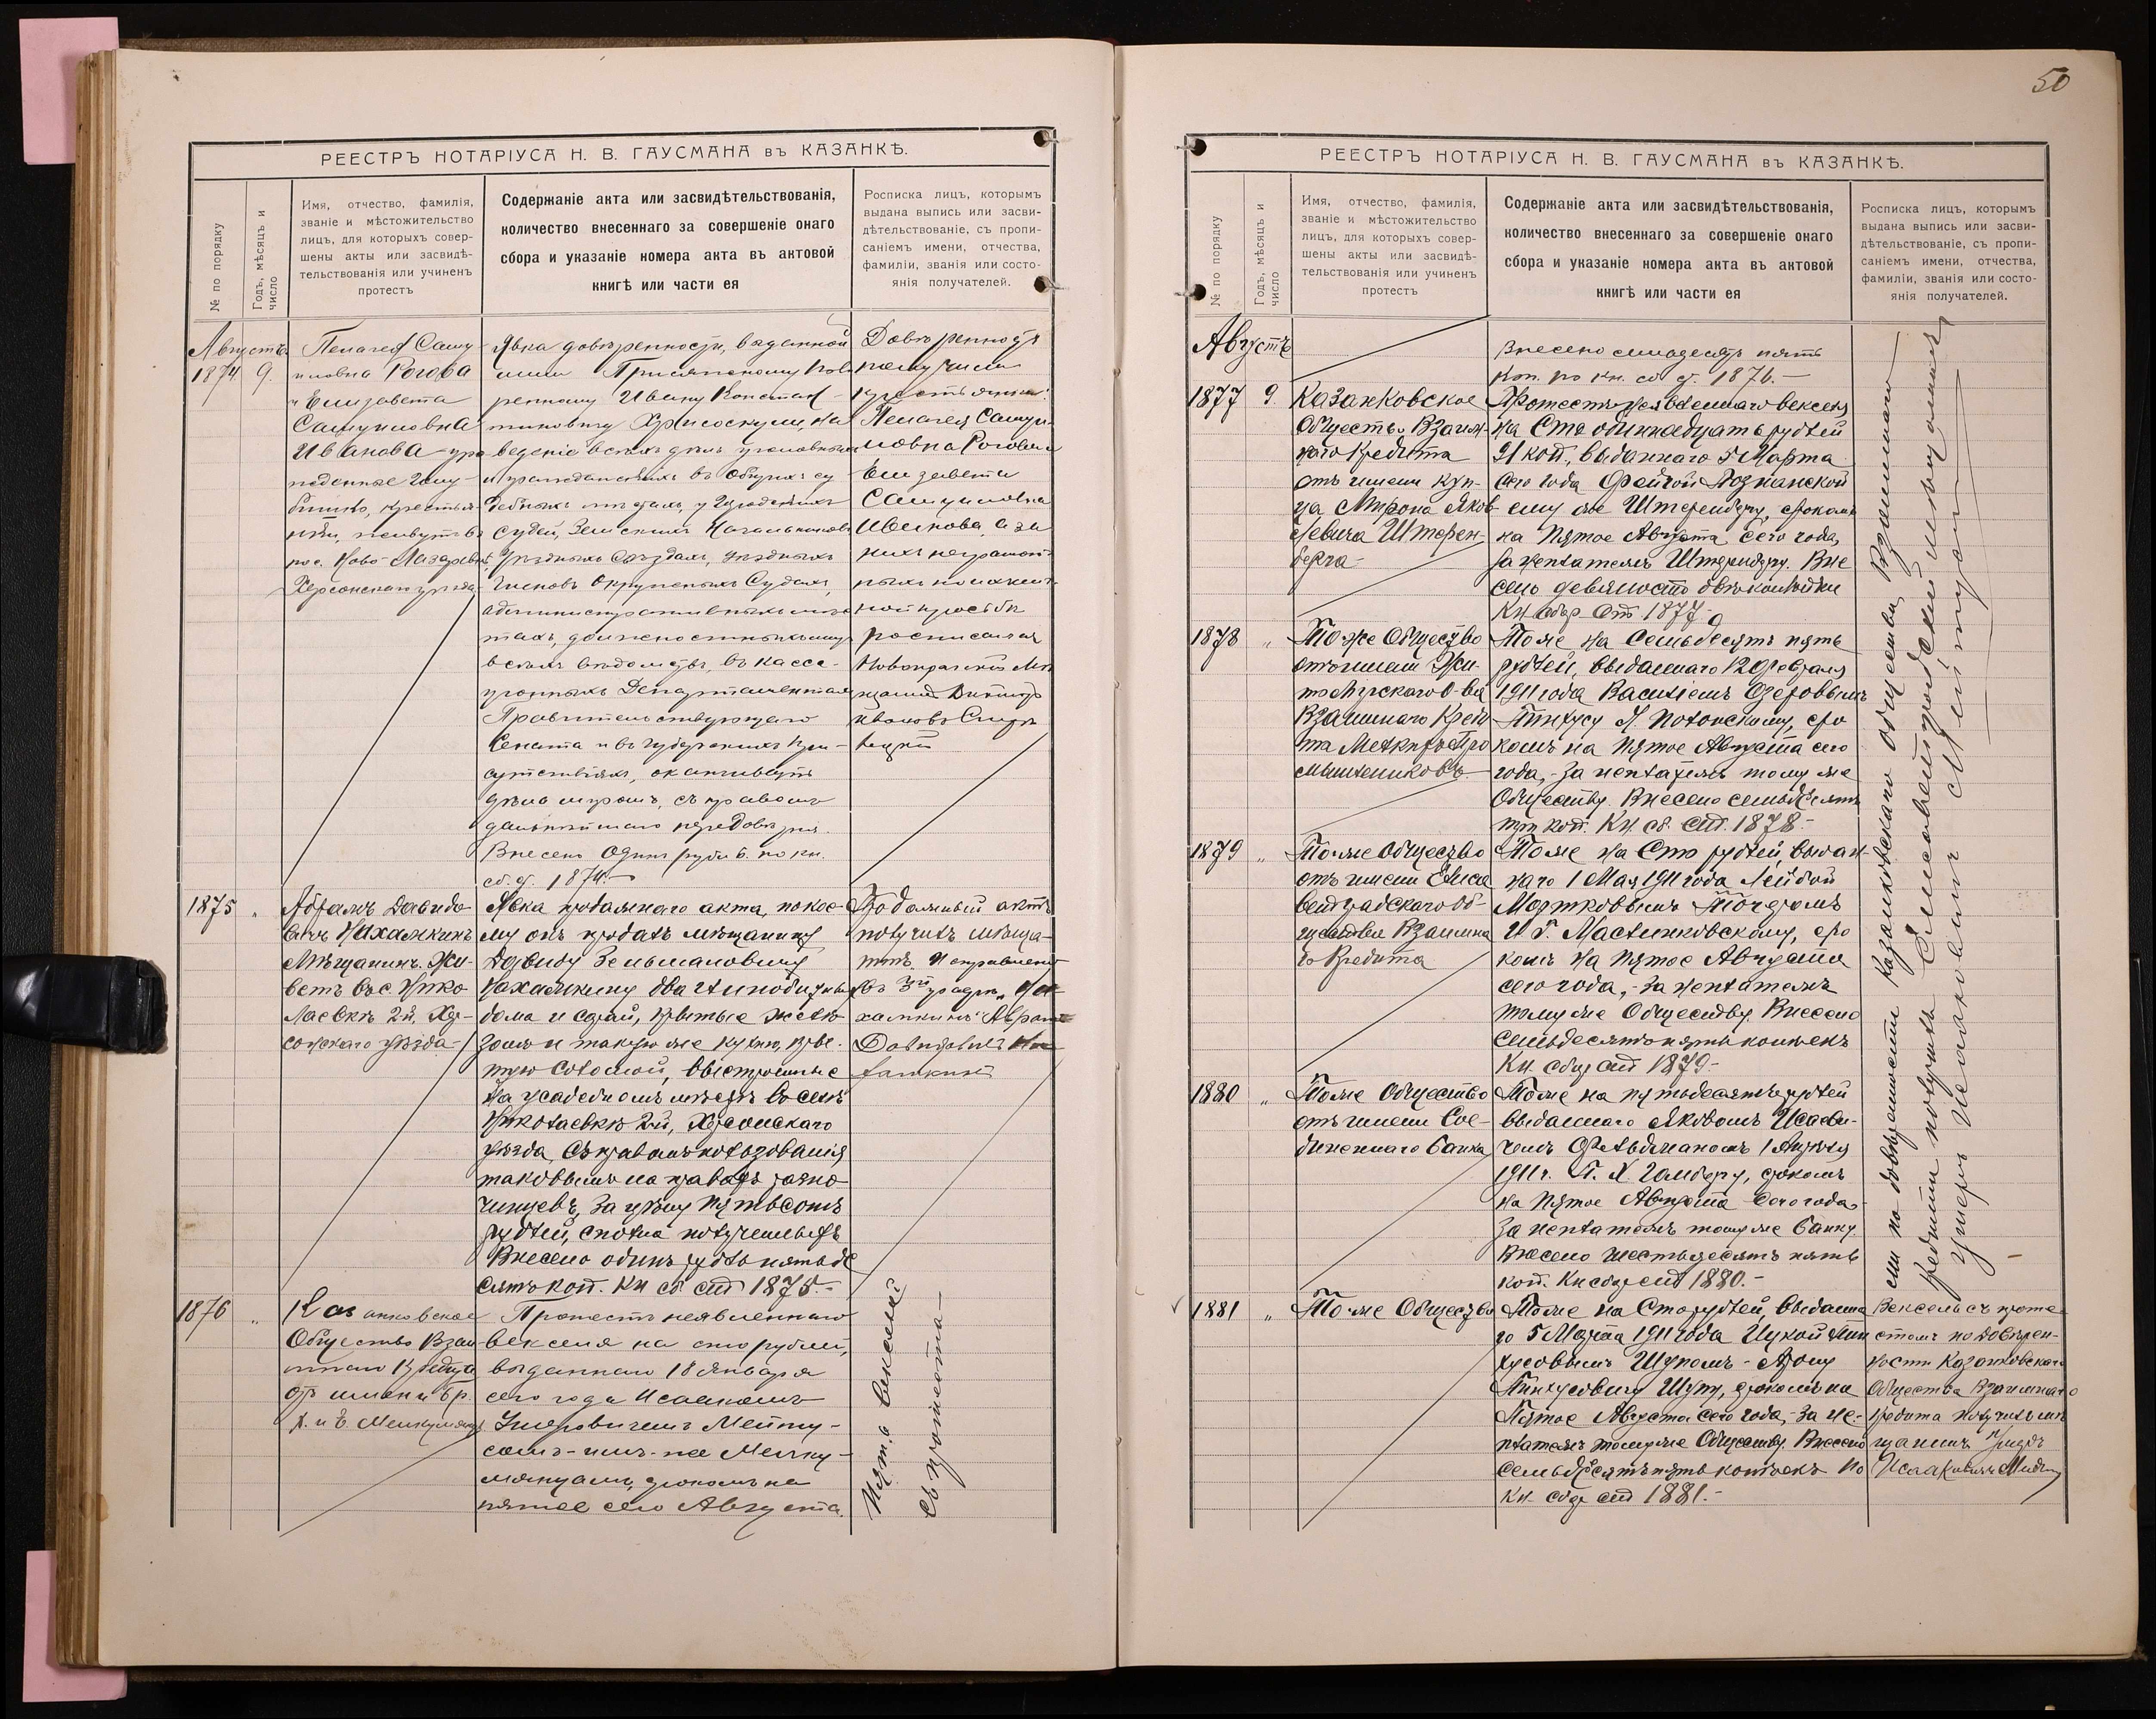 50
РЕЕСТРЪ НОТАРІУСА Н. В. ГАУСМАНА въ КАЗАНКѢ.
№ по порядку
Годъ, мѣсяцъ и
число
Имя, отчество, фамилія,
званіе и мѣстожительство
лицъ, для которыхъ совер-
шены акты или засвидѣ-
тельствованія или учиненъ
протестъ
Содержаніе акта или засвидѣтельствованія,
количество внесеннаго за совершеніе онаго
сбора и указаніе номера акта въ актовой
книгѣ или части ея
Росписка лицъ, которымъ
выдана выпись или засви-
дѣтельствованіе, съ пропи-
саніемъ имени, отчества,
фамиліи, званія или состо-
янія получателей.
Августъ
1874 9.
Пелагея Саму-
иловна Рогова
и Елизавета
Самуиловна
Иванова
Херсонскаго уѣзда
Явка довѣренности, выданной
ими Присяжному Повѣ-
ренному Ивану Констан-
тиновичу на
веденіе всѣхъ дѣлъ уголовныхъ
и гражданскихъ въ общихъ су-
судей, Земскихъ Начальниковъ
Уѣздныхъ Съѣздахъ, уѣздныхъ
Членовъ Окружныхъ Судахъ,
административныхъ мѣс-
тахъ, должностныхъ лицъ
всѣхъ вѣдомствъ, въ касса-
ціонныхъ Департаментахъ
Правительствующаго
Сената и въ губернскихъ при-
сутствіяхъ, оканчивать
дѣла миромъ, съ правомъ
дальнѣйшаго передовѣрія.
Внесено Одинъ рубль по кн.
сб. ст. 1874.-
Довѣренность
получили
крестьянки:
Пелагея Самуи-
ловна Рогова и
Елизавета
Самуиловна
Иванова, а за
нихъ неграмот-
ныхъ по ихъ лич-
ной просьбѣ
росписался
1875 "
Абрамъ Давидо-
вичъ Нахамкинъ
Мѣщанинъ. Жи-
ветъ въ с. Нико-
лаевкѣ 2й, Хер-
сонскаго уѣзда-
Явка продажнаго акта, по кое-
му онъ продалъ мѣщанину
Давиду Зельмановичу
Нахамкину два
дома и сарай, крытые желѣ-
зомъ и такую же кухню, кры-
тую соломой, выстроенные
на усадебномъ мѣстѣ въ селѣ
Николаевкѣ 2й, Херсонскаго
уѣзда, съ правомъ пользованія
таковымъ на правахъ разно-
чинцевъ, за цѣну пятьсотъ
рублей, сполна полученныхъ
Внесено одинъ рубль пятьде
сятъ коп. Кн сб ст 1875.-
Продажный актъ
получилъ мѣща-
нинъ. Исправленному
въ 3й графѣ „На-
хамкинъ" Абрамъ
Давидовичъ На-
хамкинъ
1876 "
Казанковское
Общество Взаи
мнаго Кредита
отъ имени бр.
Протестъ неявленнаго
векселя на сто рублей,
выданнаго 18 Января
сего года Исаакомъ
срокомъ на
пятое сего Августа.
Пять векселей
съ протестомъ-
РЕЕСТРЪ НОТАРІУСА Н. В. ГАУСМАНА въ КАЗАНКѢ.
№ по порядку
Годъ, мѣсяцъ и
число
Имя, отчество, фамилія,
званіе и мѣстожительство
лицъ, для которыхъ совер-
шены акты или засвидѣ-
тельствованія или учиненъ
протестъ
Содержаніе акта или засвидѣтельствованія,
количество внесеннаго за совершеніе онаго
сбора и указаніе номера акта въ актовой
книгѣ или части ея
Росписка лицъ, которымъ
выдана выпись или засви-
дѣтельствованіе, съ пропи-
саніемъ имени, отчества,
фамиліи, званія или состо-
янія получателей.
Августъ
Внесено семьдесятъ пять
коп. по кн. сб ст. 1876.-
1877 9.
Казанковское
Общество Взаим-
наго Кредита
отъ имени Куп-
ца Мирона Яков-
левича Штерен-
берга-
Протестъ неявленнаго векселя
на Сто одиннадцать рублей
21 коп., выданнаго 5 Марта
сего года Фейгой Познанской
ему же Штеренбергу, срокомъ
на Пятое Августа сего года,
за неплатежъ Штеренбергу. Вне
сено девяносто двѣ копѣйки
Кн. сбор ст 1877-
1878 "
Тоже Общество
отъ имени Жи-
томірскаго О-ва
Взаимнаго Креди
та
Тоже на Семьдесятъ пять
рублей, выданнаго 12 февраля
1911 года Василіемъ Озеровымъ
Пинхусу срo
комъ на Пятое Августа сего
года,-за неплатежъ тому же
Обществу. Внесено семьдесятъ
коп. Кн. сб. ст. 1878.-
1879 "
Тоже Общество
отъ имени Елиса
ветградскаго Об-
щества Взаимна
го Кредита
Тоже на Сто рублей, выдан-
наго 1 Мая 1911 года Лейбой
Мортковымъ
И Г. Масленковскому, сро
комъ на Пятое Августа
сего года,-за неплатежъ
тому же Обществу. Внесено
семьдесятъ пять копѣекъ
Кн. сбор ст 1879-
1880 "
Тоже Общество
отъ имени Сое-
диненнаго Банка
Тоже на пятьдесятъ рублей
выданнаго Яковомъ Исаеви-
чемъ Фельдманомъ 1 Апрѣля
1911 г. срокомъ
на Пятое Августа сего года-
за неплатежъ тому же банку.
Внесено шестьдесятъ пять
коп. Кн сбор ст 1880.-
1881 "
Тоже Общество
Тоже на Сто рублей, выданна
го 5 Марта 1911 года
хусовымъ Шупомъ - Арону
Пинхусовичу Шупу, срокомъ на
Пятое Августа сего года,-за не-
платежъ тому же Обществу. Внесено
семьдесятъ пять копѣекъ По
Кн. сбор ст 1881.-
ми по довѣренности Казанковскаго Общества Взаимнаго
Кредита получилъ Елисаветградскій мѣщанинъ
Вексель съ проте-
стомъ по довѣрен-
ности Казанковскаго
Общества Взаимнаго
Кредита получилъ мѣ
щанинъ